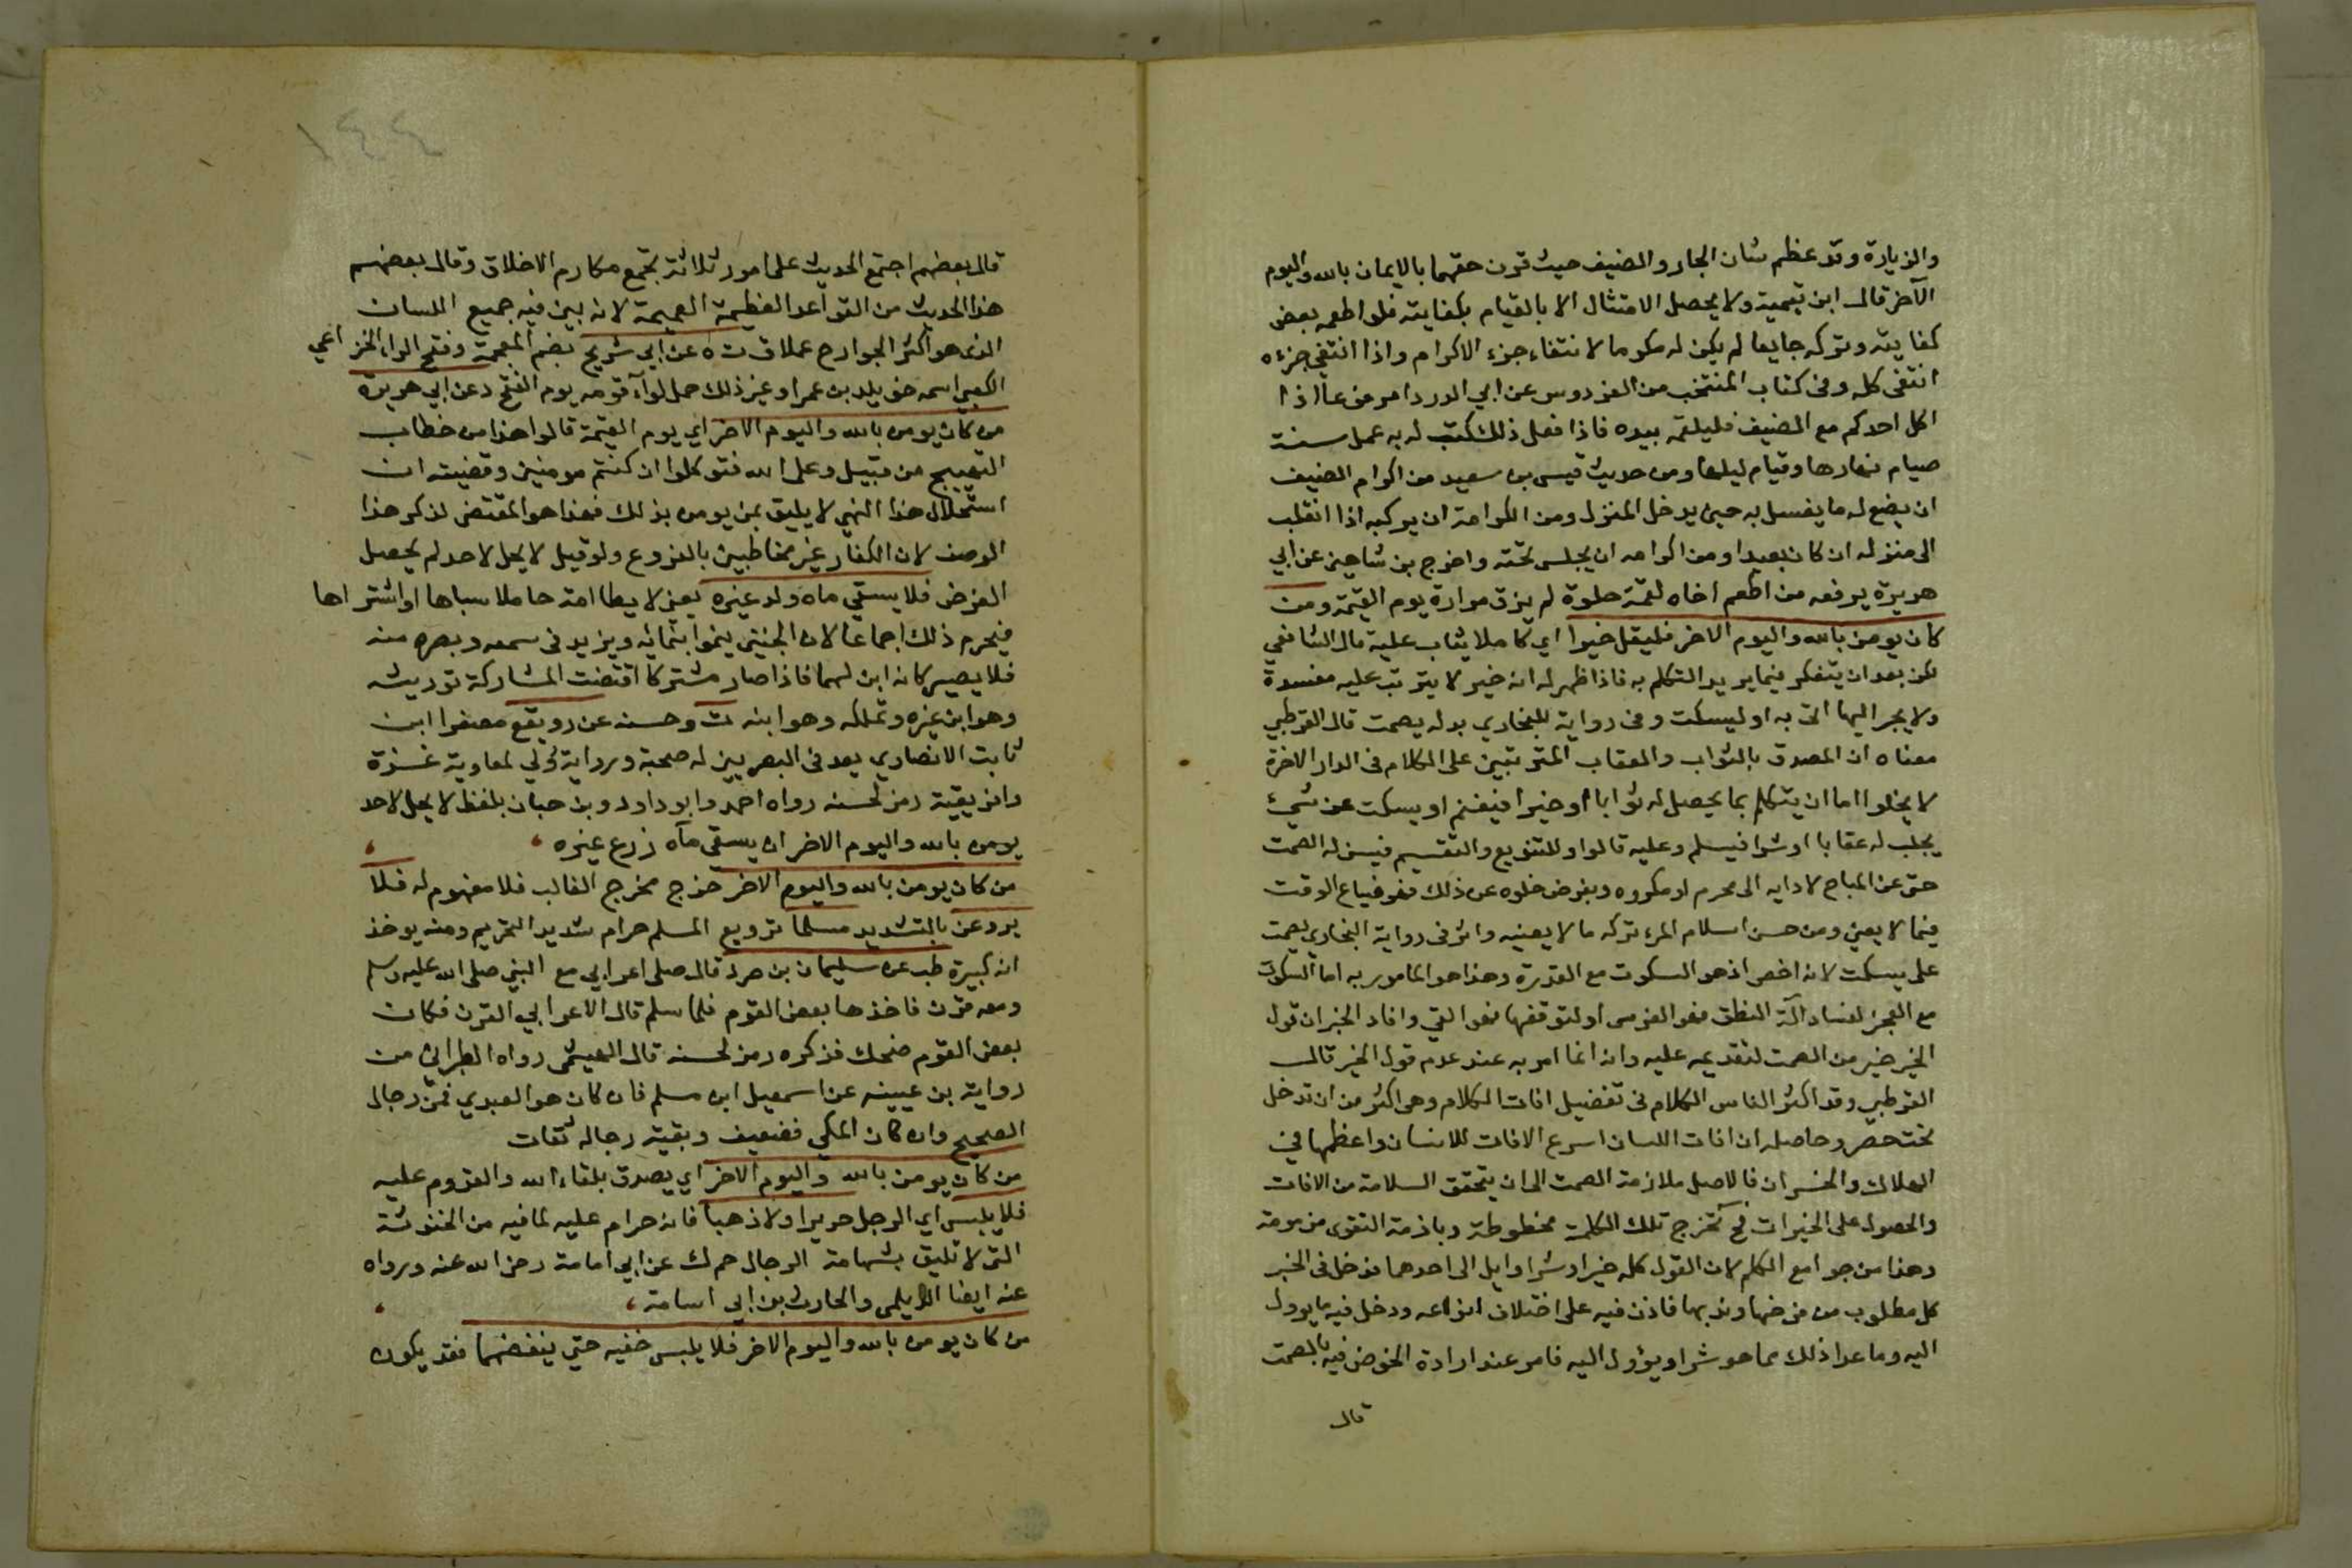 والزيارة وقد عظم شان الجار والضيف حيث قرن حقهما بالايمان بالله واليوم
الآخر قال ابن تيمية ولا يحصل الامتثال الا بالقيام بكفايته فلو اطعمه بعض
كفايته وتركه جايعا لم يكن له مكرما لانتفاء جزء الاكرام واذا انتفي جزءه
انتفى كله وفى كتاب المنتخب من الفردوس عن ابي الدرداء مرفوعا اذا
اكل احدكم مع الضيف فليلقمه بيده فاذا فعل ذلك كتب له به عمل سنة
صيام نهارها وقيام ليلها ومن حديث قيس بن سعيد من اكرام الضيف
ان يضع له ما يغسل به حين يدخل المنزل ومن اكرامه ان يركبه اذا انقلب
الى منزله ان كان بعيدا ومن اكرامه ان يجلس تحته واخرج بن شاهين عن ابي
هريرة يرفعه من اطعم اخاه لقمة حلوة لم يذق مرارة يوم القيمة ومن
كان يومن بالله واليوم الاخر فليقل خيرا اي كاملا يثاب عليه قال الشافعي
لكن بعد ان يتفكر فيما يريد التكلم به فاذا ظهر له انه خير لا يترتب عليه مفسدة
ولا يجر اليها اتى به او ليسكت وفى رواية للبخاري بدله يصمت قال القرطبي
معناه ان المصدق بالثواب والعقاب المترتبين على الكلام فى الدار الاخرة
لا يخلوا اما ان يتكلم بما يحصل له ثوابا او خيرا فيغنم او يسكت عن شيء
يجلب له عقابا او شرا فيسلم وعليه قالوا و للتنويع والتقسيم فيسن له الصمت
حتى عن المباح لادايه الى محرم او مكروه وبفرض خلوه عن ذلك فهو ضياع الوقت
فيما لا يعني ومن حسن اسلام المرء تركه ما لا يعنيه واثر فى رواية البخاري يصمت
على يسكت لانه اخص اذ هو السكوت مع القدرة وهذا هو المامور به اما السكوت
مع العجز لفساد آلة النطق فهو الخرس او لتوقفها فهو العي وافاد الخبر ان قول
الخير خير من الصمت لتقديمه عليه وانه انما امر به عند عدم قول الخير قال
القرطبي وقد اكثر الناس الكلام فى تفضيل افات الكلام وهى اكثر من ان تدخل
تحت حصر وحاصله ان افات اللسان اسرع الافات للانسان واعظمها في
الهلاك والخسران فالاصل ملازمة الصمت الى ان يتحقق السلامة من الافات
والحصول على الخيرات فح تخرج تلك الكلمة مخطومة وبازمة التقوى مزمومة
وهذا من جوامع الكلم لان القول كله خير او شر او ايل الى احدهما فدخل فى الخير
كل مطلوب من فرضها وندبها فاذن فيه على اختلاف انواعه ودخل فيه ما يوول
اليه وما عدا ذلك مما هو شر او يؤول اليه فامر عند ارادة الخوض فيه بالصمت
قال
١٤٤
قال بعضهم اجتمع الحديث على امور ثلاثة تجمع مكارم الاخلاق وقال بعضهم
هذا الحديث من القواعد العظيمة العميمة لانه بين فيه جميع اللسان
الذى هو اكثر الجوارح عملا ق ت ه عن ابي شريح بضم المعجمة وفتح الراء الخزاعي
الكعبي اسمه خويلد بن عمر او غير ذلك حمل لوآء قومه يوم الفتح وعن ابي هريرة
من كان يومن بالله واليوم الاخر اي يوم القيمة قالوا هذا من خطاب
التهييج من قبيل وعلى الله فتوكلوا ان كنتم مومنين وقضيته ان
استحلال هذا النهي لا يليق بمن يومن بذلك فهذا هو المقتضى لذكر هذا
الوصف لان الكفار غير مخاطبين بالفروع ولو قيل لا يحل لاحد لم يحصل
الغرض فلا يسقي ماه ولد غيره يعني لا يطا امة حاملا سباها او اشتراها
فيحرم ذلك اجماعا لان الجنين ينموا بمائه ويزيد فى سمعه وبصره منه
فلا يصير كانه ابن لهما فاذا صار مشتركا اقتضت المشاركة توريثه
وهو ابن غيره وتملكه وهو ابنه ت وحسنه عن رويفع مصغرا ابن
ثابت الانصاري يعد فى البصريين له صحبة ورواية ولي لمعاوية غزوة
وافريقية رمز لحسنه رواه احمد وابو داود وبن حبان بلفظ لا يحل لاحد
يومن بالله واليوم الاخر ان يسقى مآء زرع غيره
من كان يومن بالله واليوم الاخر خرج مخرج الغالب فلا مفهوم له فلا
يروعن بالتشديد مسلما ترويع المسلم حرام شديد التحريم ومنه يوخذ
انه كبيرة طب عن سليمان بن صرد قال صلى اعرابي مع النبي صلى الله عليه وسلم
ومعه قرن فاخذها بعض القوم فلما سلم قال الاعرابي القرن فكان
بعض القوم ضحك فذكره رمز لحسنه قال الهيثمى رواه الطبراني من
رواية بن عيينه عن اسمعيل ابن مسلم فان كان هو العبدي فمن رجال
الصحيح وان كان المكي فضعيف وبقية رجاله ثقات
من كان يومن بالله واليوم الاخر اي يصدق بلقاء الله والقدوم عليه
فلا يلبس اي الرجل حريرا ولا ذهبا فانه حرام عليه لما فيه من الخنوثة
التى لا تليق بشهامة الرجال حم ك عن ابي امامة رضى الله عنه ورواه
عنه ايضا الديلمى والحارث بن ابي اسامة
من كان يومن بالله واليوم الاخر فلا يلبس خفيه حتي ينفضهما فقد يكون